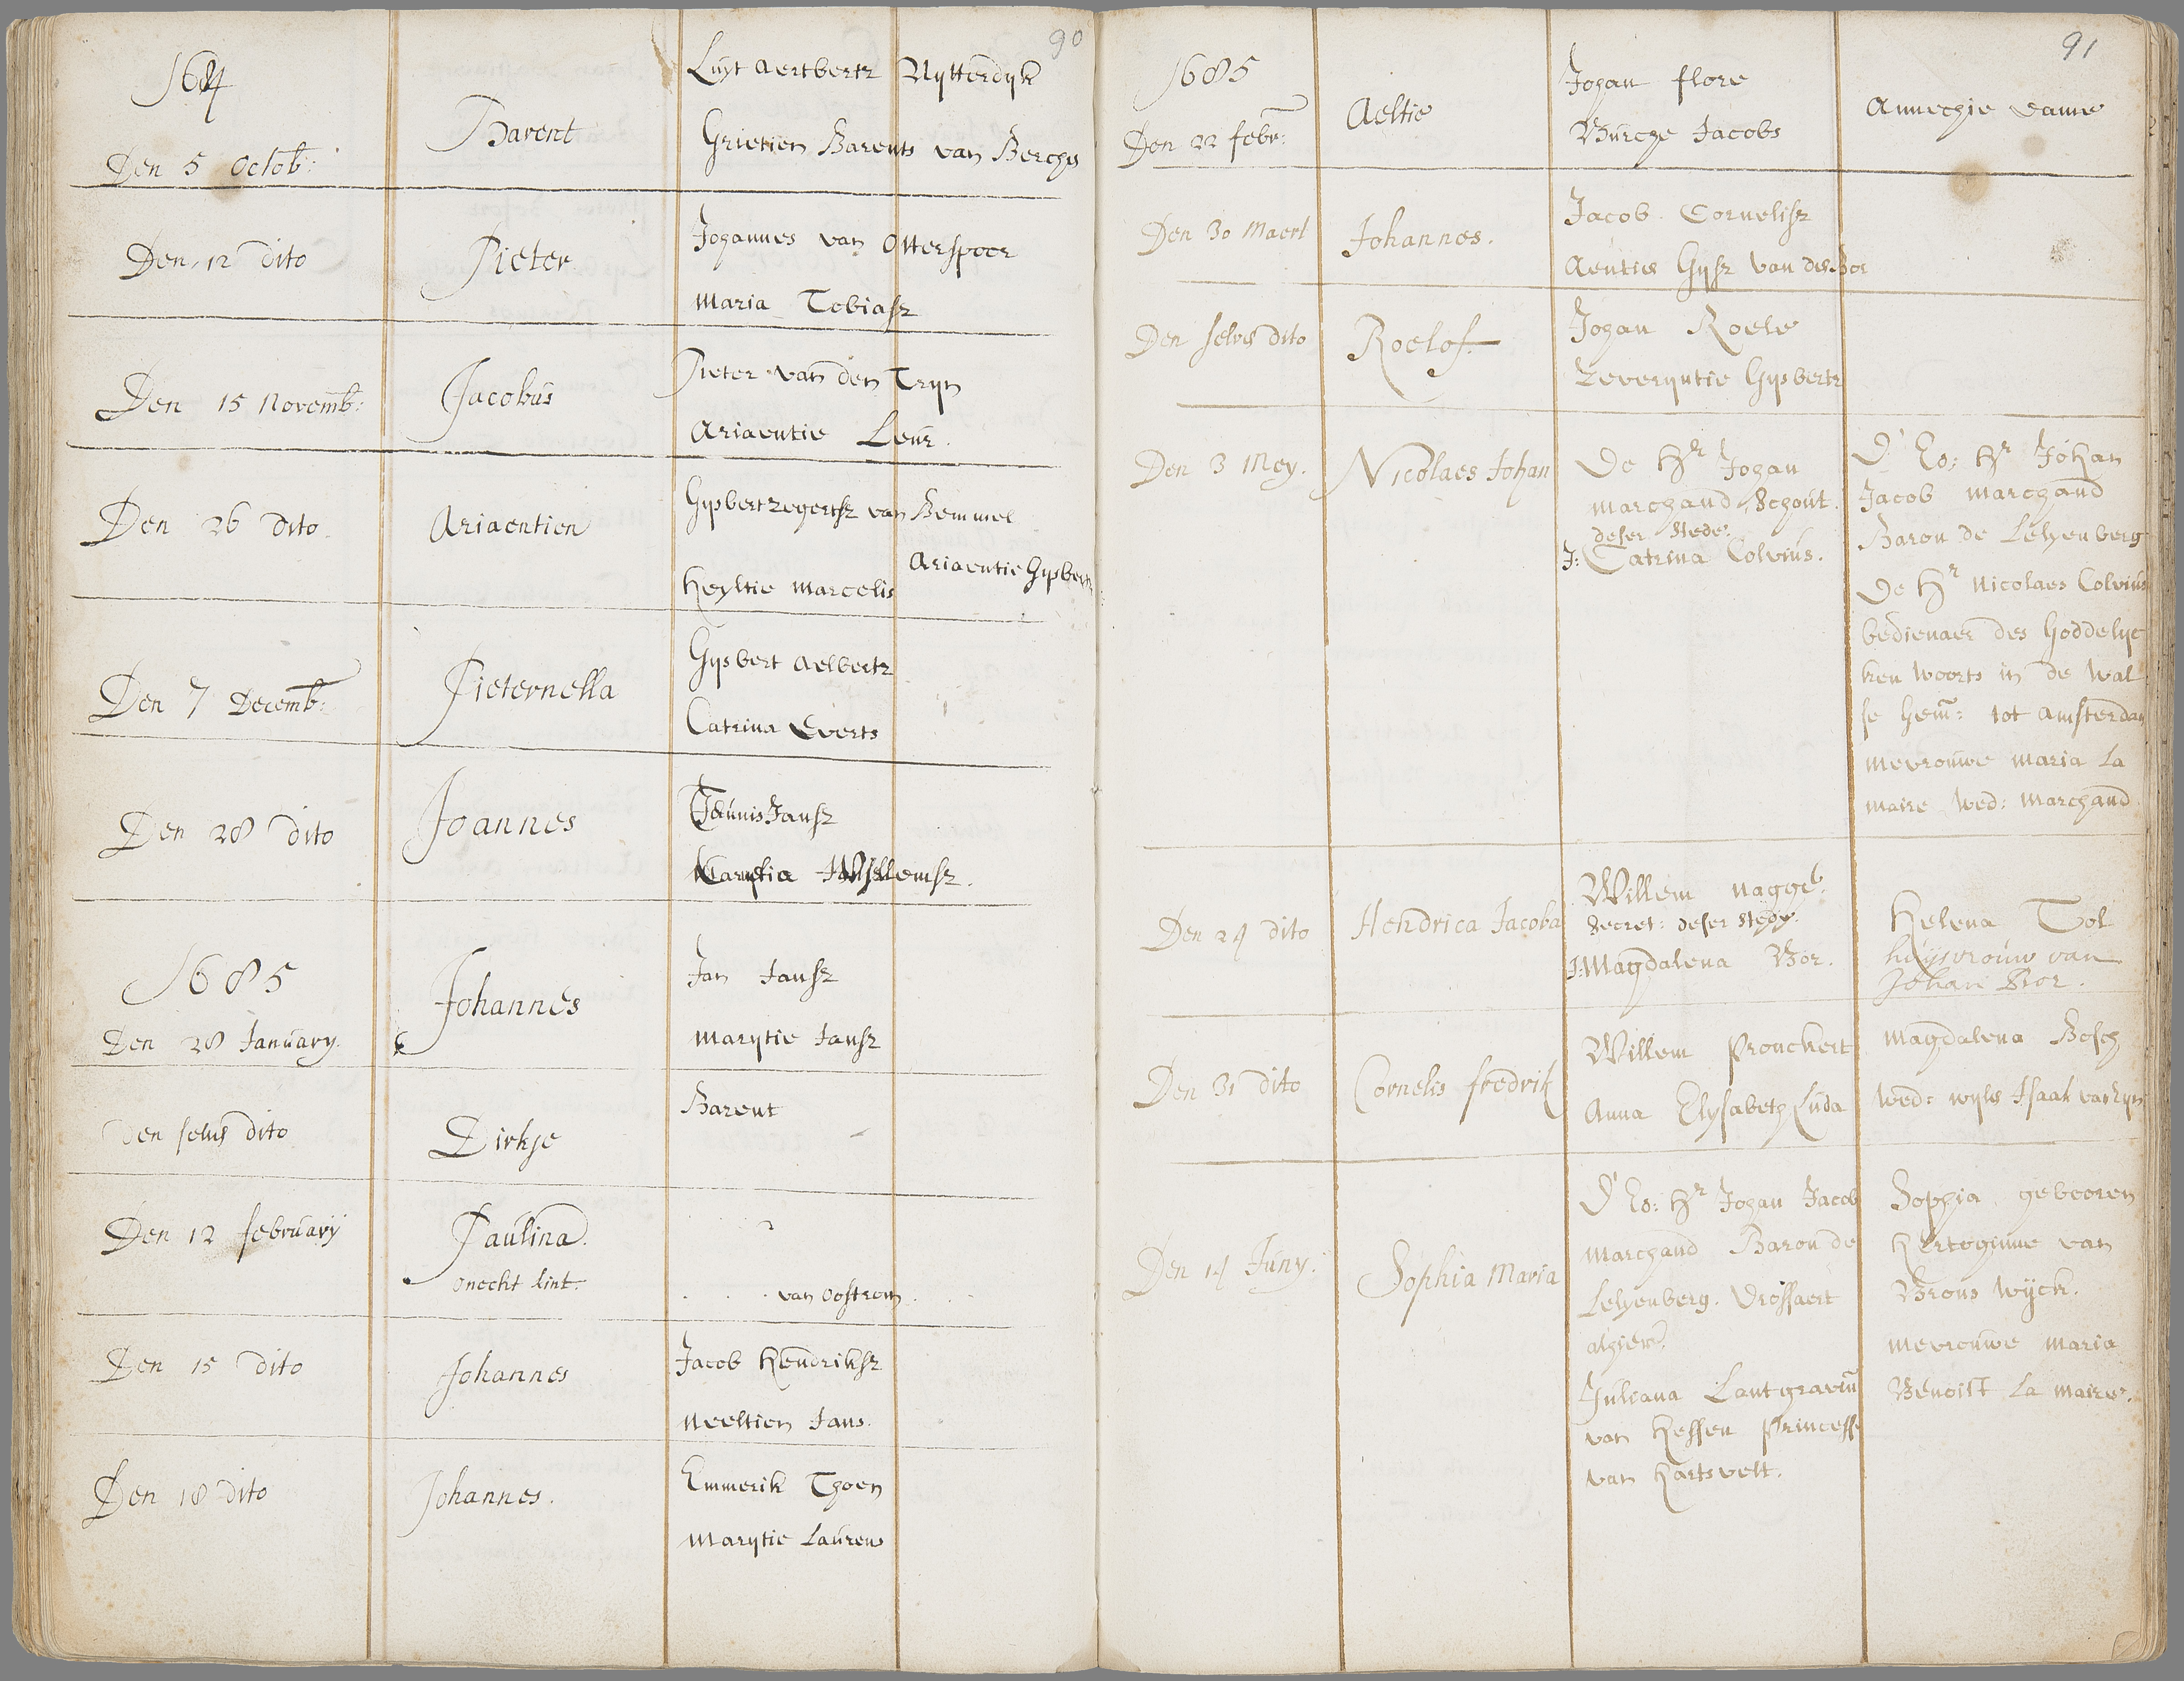 90
1684
Den 5 Octob:
Barent
Luyt Aertbertz Uytterdyk
Grietien Barents van Berchs
Den 12 dito
Pieter
Johannes van Otterspoor
Maria Tobiasz
Den 15 Novemb:
Jacobus
Pieter van den Tryn
Ariaentie Leur.
Den 26 dito
Ariaentien
Gysbert Zegertsz van Bemmel
Heyltie Marcelis
Ariaentie Gysbertz
Den 7 Decemb:
Pieternella
Gysbert Aelbertz
Catrina Everts
Den 28 dito
Joannes
Teunis Jansz
Willemsz.
1685
Den 28 January.
Johannes
Jan Jansz
Marytie Jansz
Den selvs dito
Dirkje
Barent
Den 12 february
Paulina
onecht kint.
van Oostrom
Den 15 dito
Johannes
Jacob Hendriksz
Neeltien Jans.
Den 18 dito
Johannes.
Emmerik Thoen
Marytie Laurens
91
1685
Den 22 febr:
Aeltie
Johan flore
Burche Jacobs
Annechie
Den 30 Maert
Johannes.
Jacob Cornelisz
Aenties Gysz van des Bor
Den selvs dito
Roelof.
Johan Roele
Zeveryntie Gysbertz
Den 3 Mey.
Nicolaes Johan
De Hr Johan
Marchand, Schout.
deser Stede.
J: Catrina Colvius.
D' Ed: Hr Johan
Jacob Marchand
Baron de Lehenberg
De Hr Nicolaes Colvius
bedienaer des Goddelyc
ken Woorts in de Wal
se Gem: tot Amsterdam
Mevrouwe Maria La
Maire Wed: Marchand.
Den 24 dito
Hendrica Jacoba
Willem
Secret: deser Stede.
J: Magdalena Bor.
Helena Tol
huysvrouw van
Johan Bor.
Den 31 dito
Cornelis fredrik
Willem Pronckert
Anna Elysabeth Luda
Magdalena Bosch
Wed: wyls Isaak van Ryn
Den 14 Juny.
Sophia Maria
D' Ed: Hr Johan Jacob
Marchand Baron de
Lehenberg. Drossaert
alhier.
Juliana Lantgravin
van Hessen Princesse
van Hartsvelt.
Sophia gebooren
Hertoginne van
Brons wyck.
Mevrouwe Maria
Benoist La Maire.